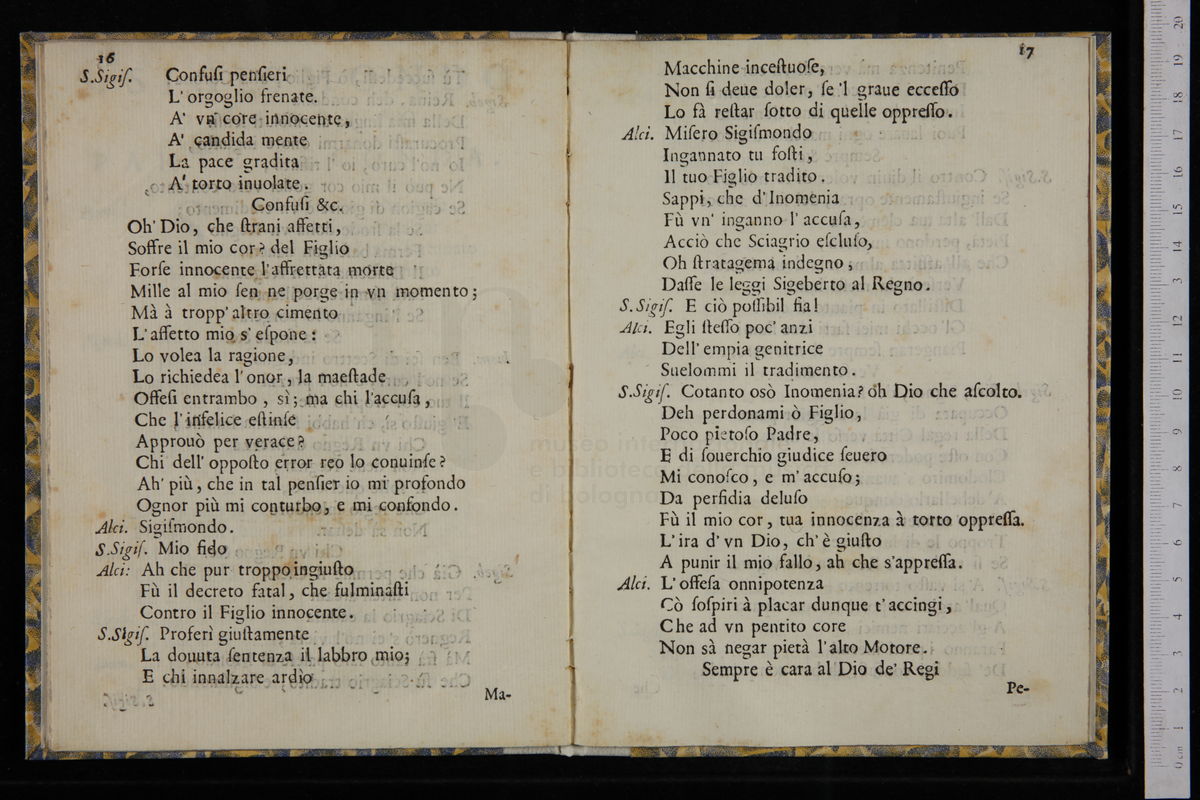 16
S.Sigiſ. Confuſi penſieri
L' orgoglio frenate.
A' vn core innocente,
A' candida mente
La pace gradita
A' torto inuolate.
Confuſi &c.
Oh' Dio, che ſtrani affetti,
Soffre il mio cor? del Figlio
Forſe innocente l'affrettata morte
Mille al mio ſen ne porge in vn momento;
Mà à tropp' altro cimento
L' affetto mio s' eſpone:
Lo volea la ragione,
Lo richiedea l'onor, la maeſtade
Offeſi entrambo, sì; ma chi l'accuſa,
Che l'infelice eſtinſe
Approuò per verace?
Chi dell' oppoſto error reo lo conuinſe?
Ah' più, che in tal penſier io mi profondo
Ognor più mi conturbo, e mi confondo.
Alci. Sigiſmondo.
S.Sigiſ. Mio fido
Alci: Ah che pur troppo ingiuſto
Fù il decreto fatal, che fulminaſti
Contro il Figlio innocente.
S.Sigiſ. Proferì giuſtamente
La douuta ſentenza il labbro mio;
E chi innalzare ardìo
Ma-
17
Macchine inceſtuoſe,
Non ſi deue doler, ſe 'l graue ecceſſo
Lo fà reſtar ſotto di quelle oppreſſo.
Alci. Miſero Sigiſmondo
Ingannato tu foſti,
Il tuo Figlio tradito.
Sappi, che d'Inomenia
Fù vn' inganno l' accuſa,
Acciò che Sciagrio eſcluſo,
Oh ſtratagema indegno,
Daſſe le leggi Sigeberto al Regno.
S.Sigiſ. E ciò poſſibil fia!
Alci. Egli ſteſſo poc' anzi
Dell' empia genitrice
Suelommi il tradimento.
S.Sigiſ. Cotanto osò Inomenia? oh Dio che aſcolto.
Deh perdonami ò Figlio,
Poco pietoſo Padre,
E di ſouerchio giudice ſeuero
Mi conoſco, e m' accuſo;
Da perfidia deluſo
Fù il mio cor, tua innocenza à torto oppreſſa.
L' ira d' vn Dio, ch' è giuſto
A punir il mio fallo, ah che s'appreſſa.
Alci. L' offeſa onnipotenza
Cò ſoſpiri à placar dunque t' accingi,
Che ad vn pentito core
Non sà negar pietà l'alto Motore.
Sempre è cara al Dio de' Regi
Pe-
museo
e biblioteca
di bologna
0 cm 1 2 3 4 5 6 7 8 9 10 11 12 13 14 15 16 17 18 19 20